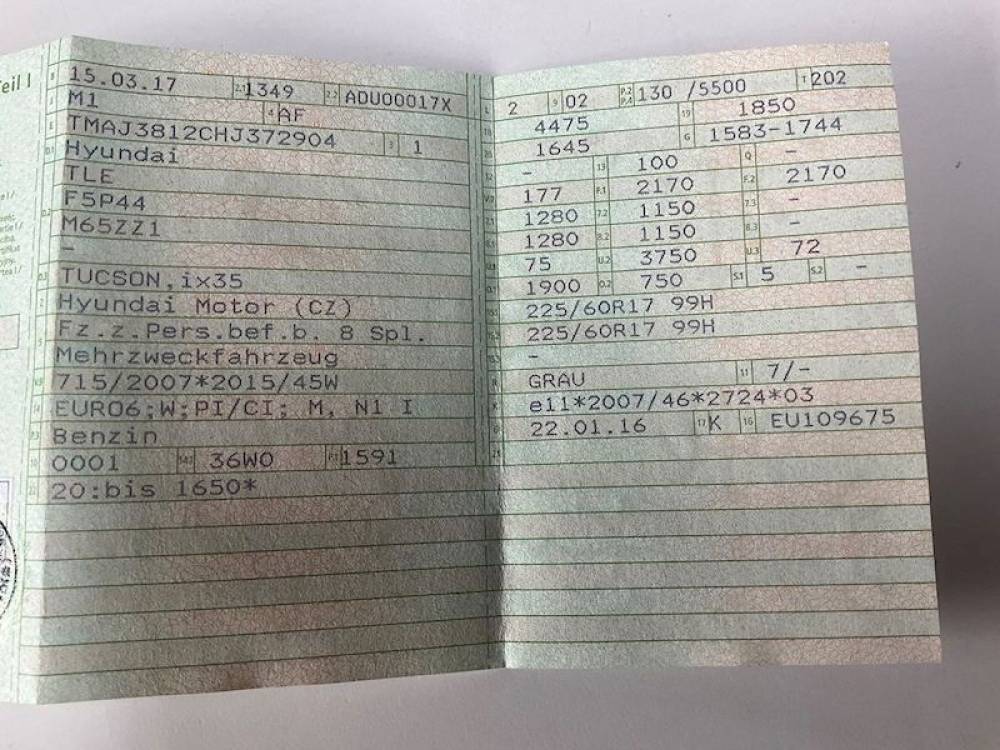 Teil I
15.03.17 2.1 1349 2.2 ADU00017X
M1 4 AF
TMAJ3812CHJ372904 3 1
Hyundai
TLE
F5P44
M65ZZ1
-
TUCSON,ix35
Hyundai Motor (CZ)
Fz.z.Pers.bef.b. 8 Spl.
Mehrzweckfahrzeug
715/2007*2015/45W
EURO6;W;PI/CI; M, N1 I
Benzin
0001 36W0 P.1 1591
20:bis 1650*
L 2 9 02 P.2 P.4 130 /5500 T 202
4475 19 1850
1645 G 1583-1744
- 13 100 Q -
177 F.1 2170 F.2 2170
1280 7.2 1150 7.3 -
1280 8.2 1150 8.3 -
75 U.2 3750 U.3 72
1900 O.2 750 S.1 5 S.2 -
225/60R17 99H
225/60R17 99H
-
GRAU 11 7/-
e11*2007/46*2724*03
22.01.16 17 K 16 EU109675